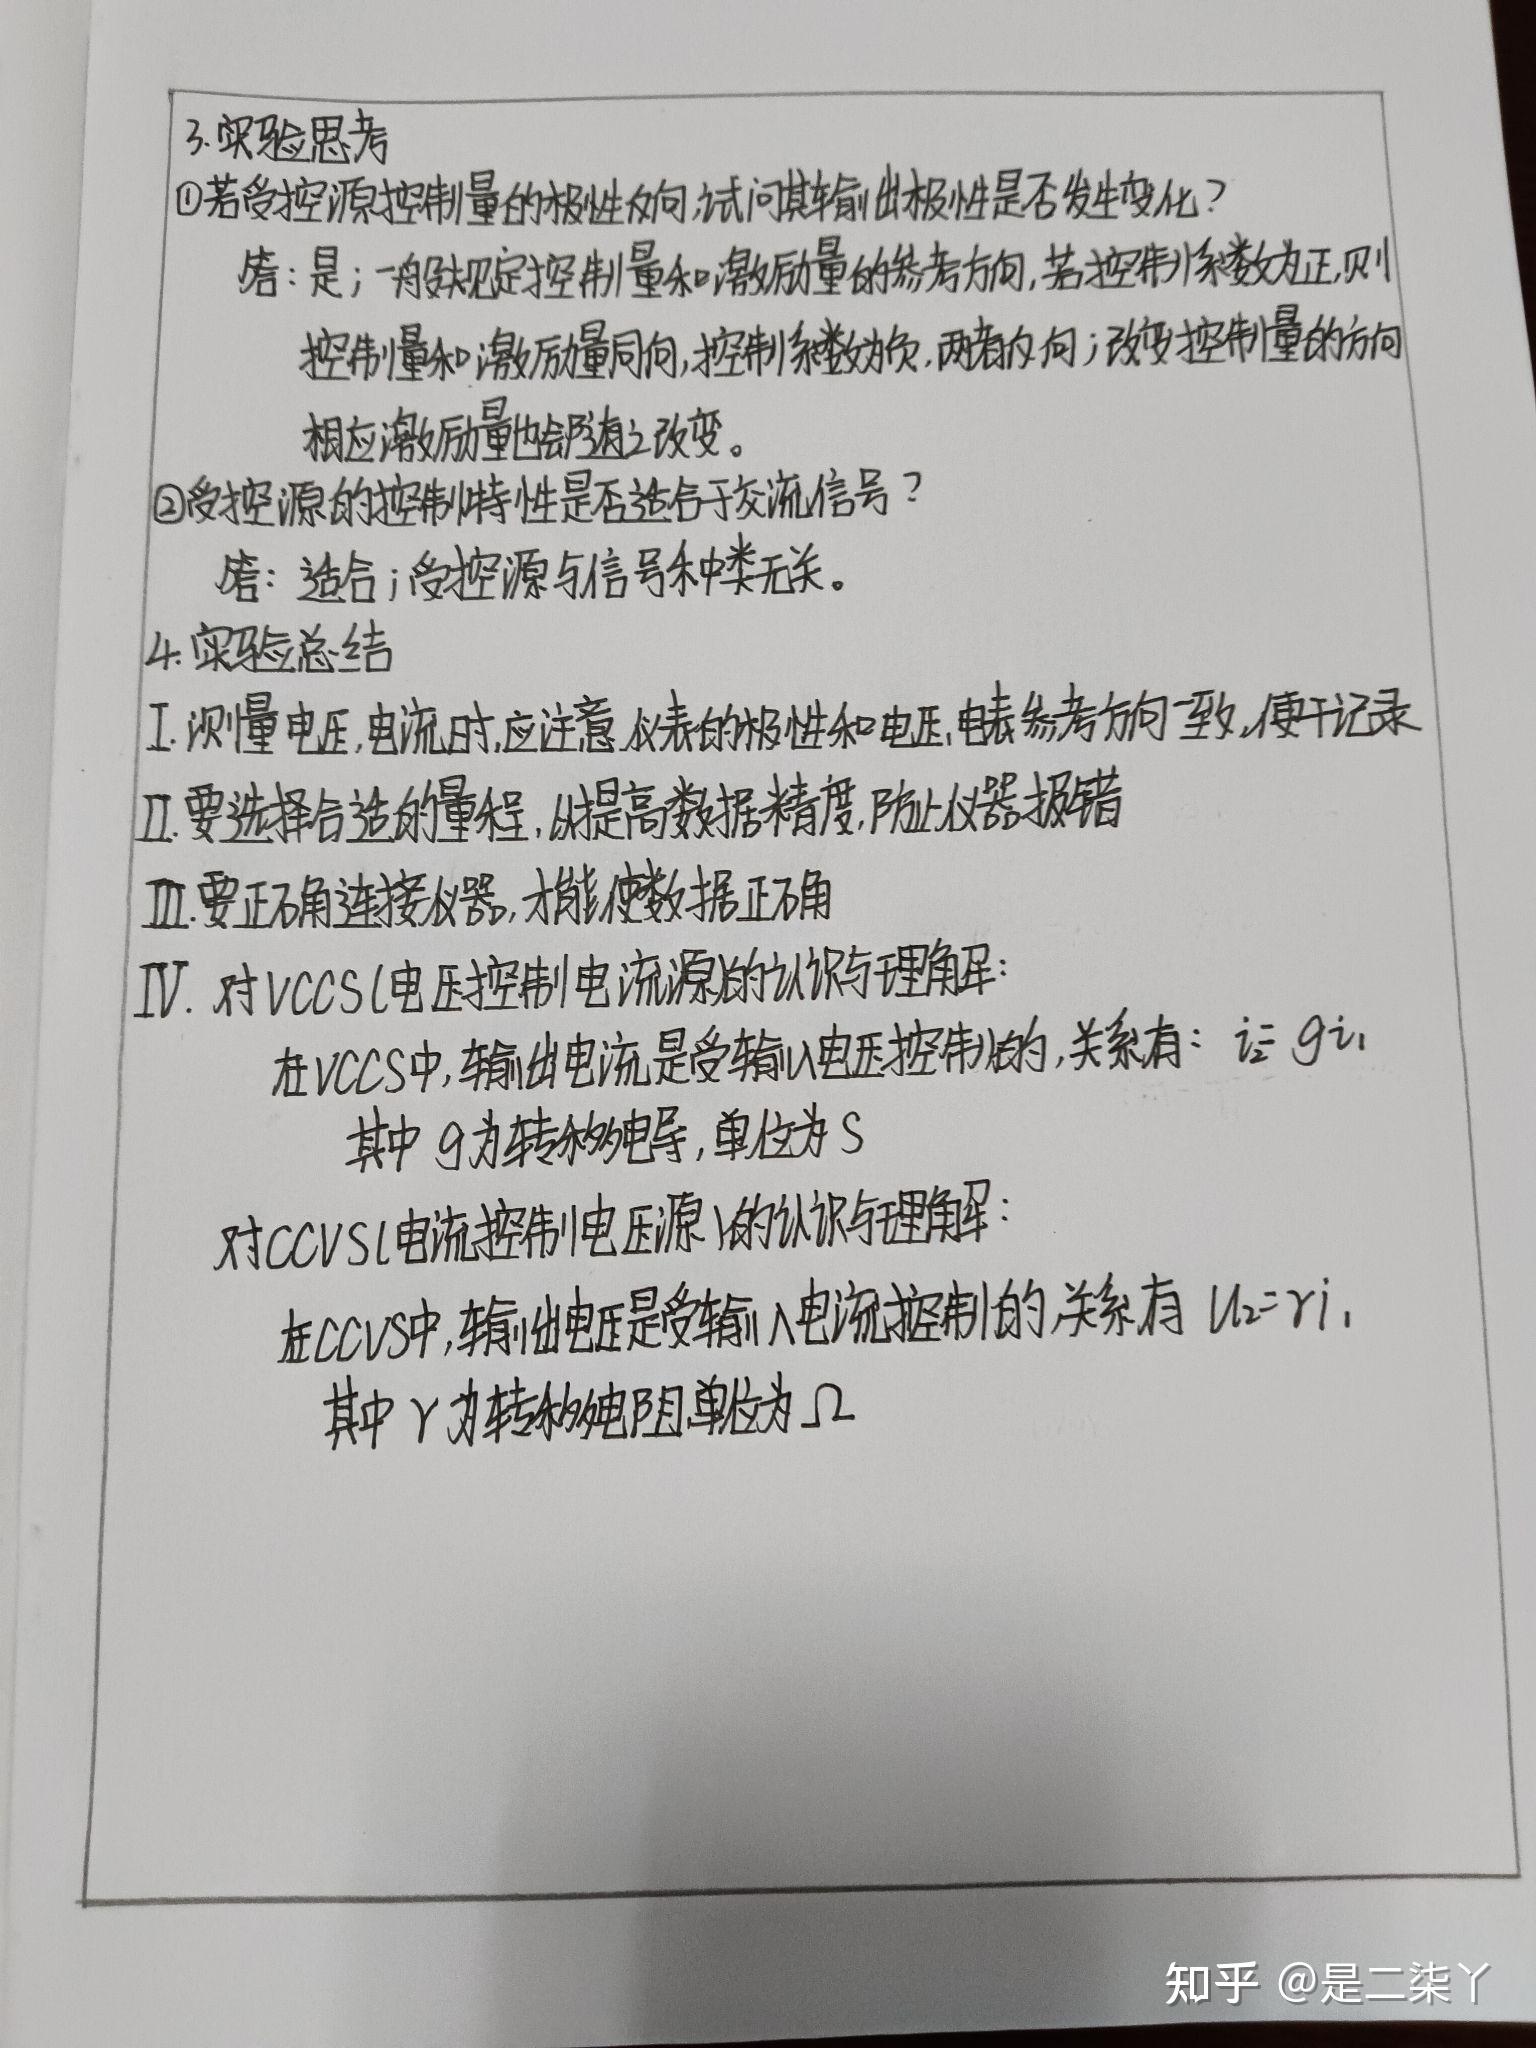 3.实验思考
①若受控源控制量的极性反向,试问其输出极性是否发生变化?
答:是;一般规定控制量和激励量的参考方向,若控制系数为正,则
控制量和激励量同向,控制系数为负,两者反向;改变控制量的方向
相应激励量也会随之改变。
②受控源的控制特性是否适合于交流信号?
答:适合;受控源与信号种类无关。
4.实验总结
I.测量电压,电流时,应注意仪表的极性和电压,电表参考方向一致,便于记录
II.要选择合适的量程,以提高数据精度,防止仪器报错
III.要正确连接仪器,才能使数据正确
IV. 对VCCS(电压控制电流源)的认识与理解:
在VCCS中,输出电流是受输入电压控制的,关系有: i₂=gi₁
其中 g为转移电导,单位为S
对CCVS(电流控制电压源)的认识与理解:
在CCVS中,输出电压是受输入电流控制的,关系有 U₂=ri₁
其中 r为转移电阻,单位为Ω
知乎 @是二柒丫